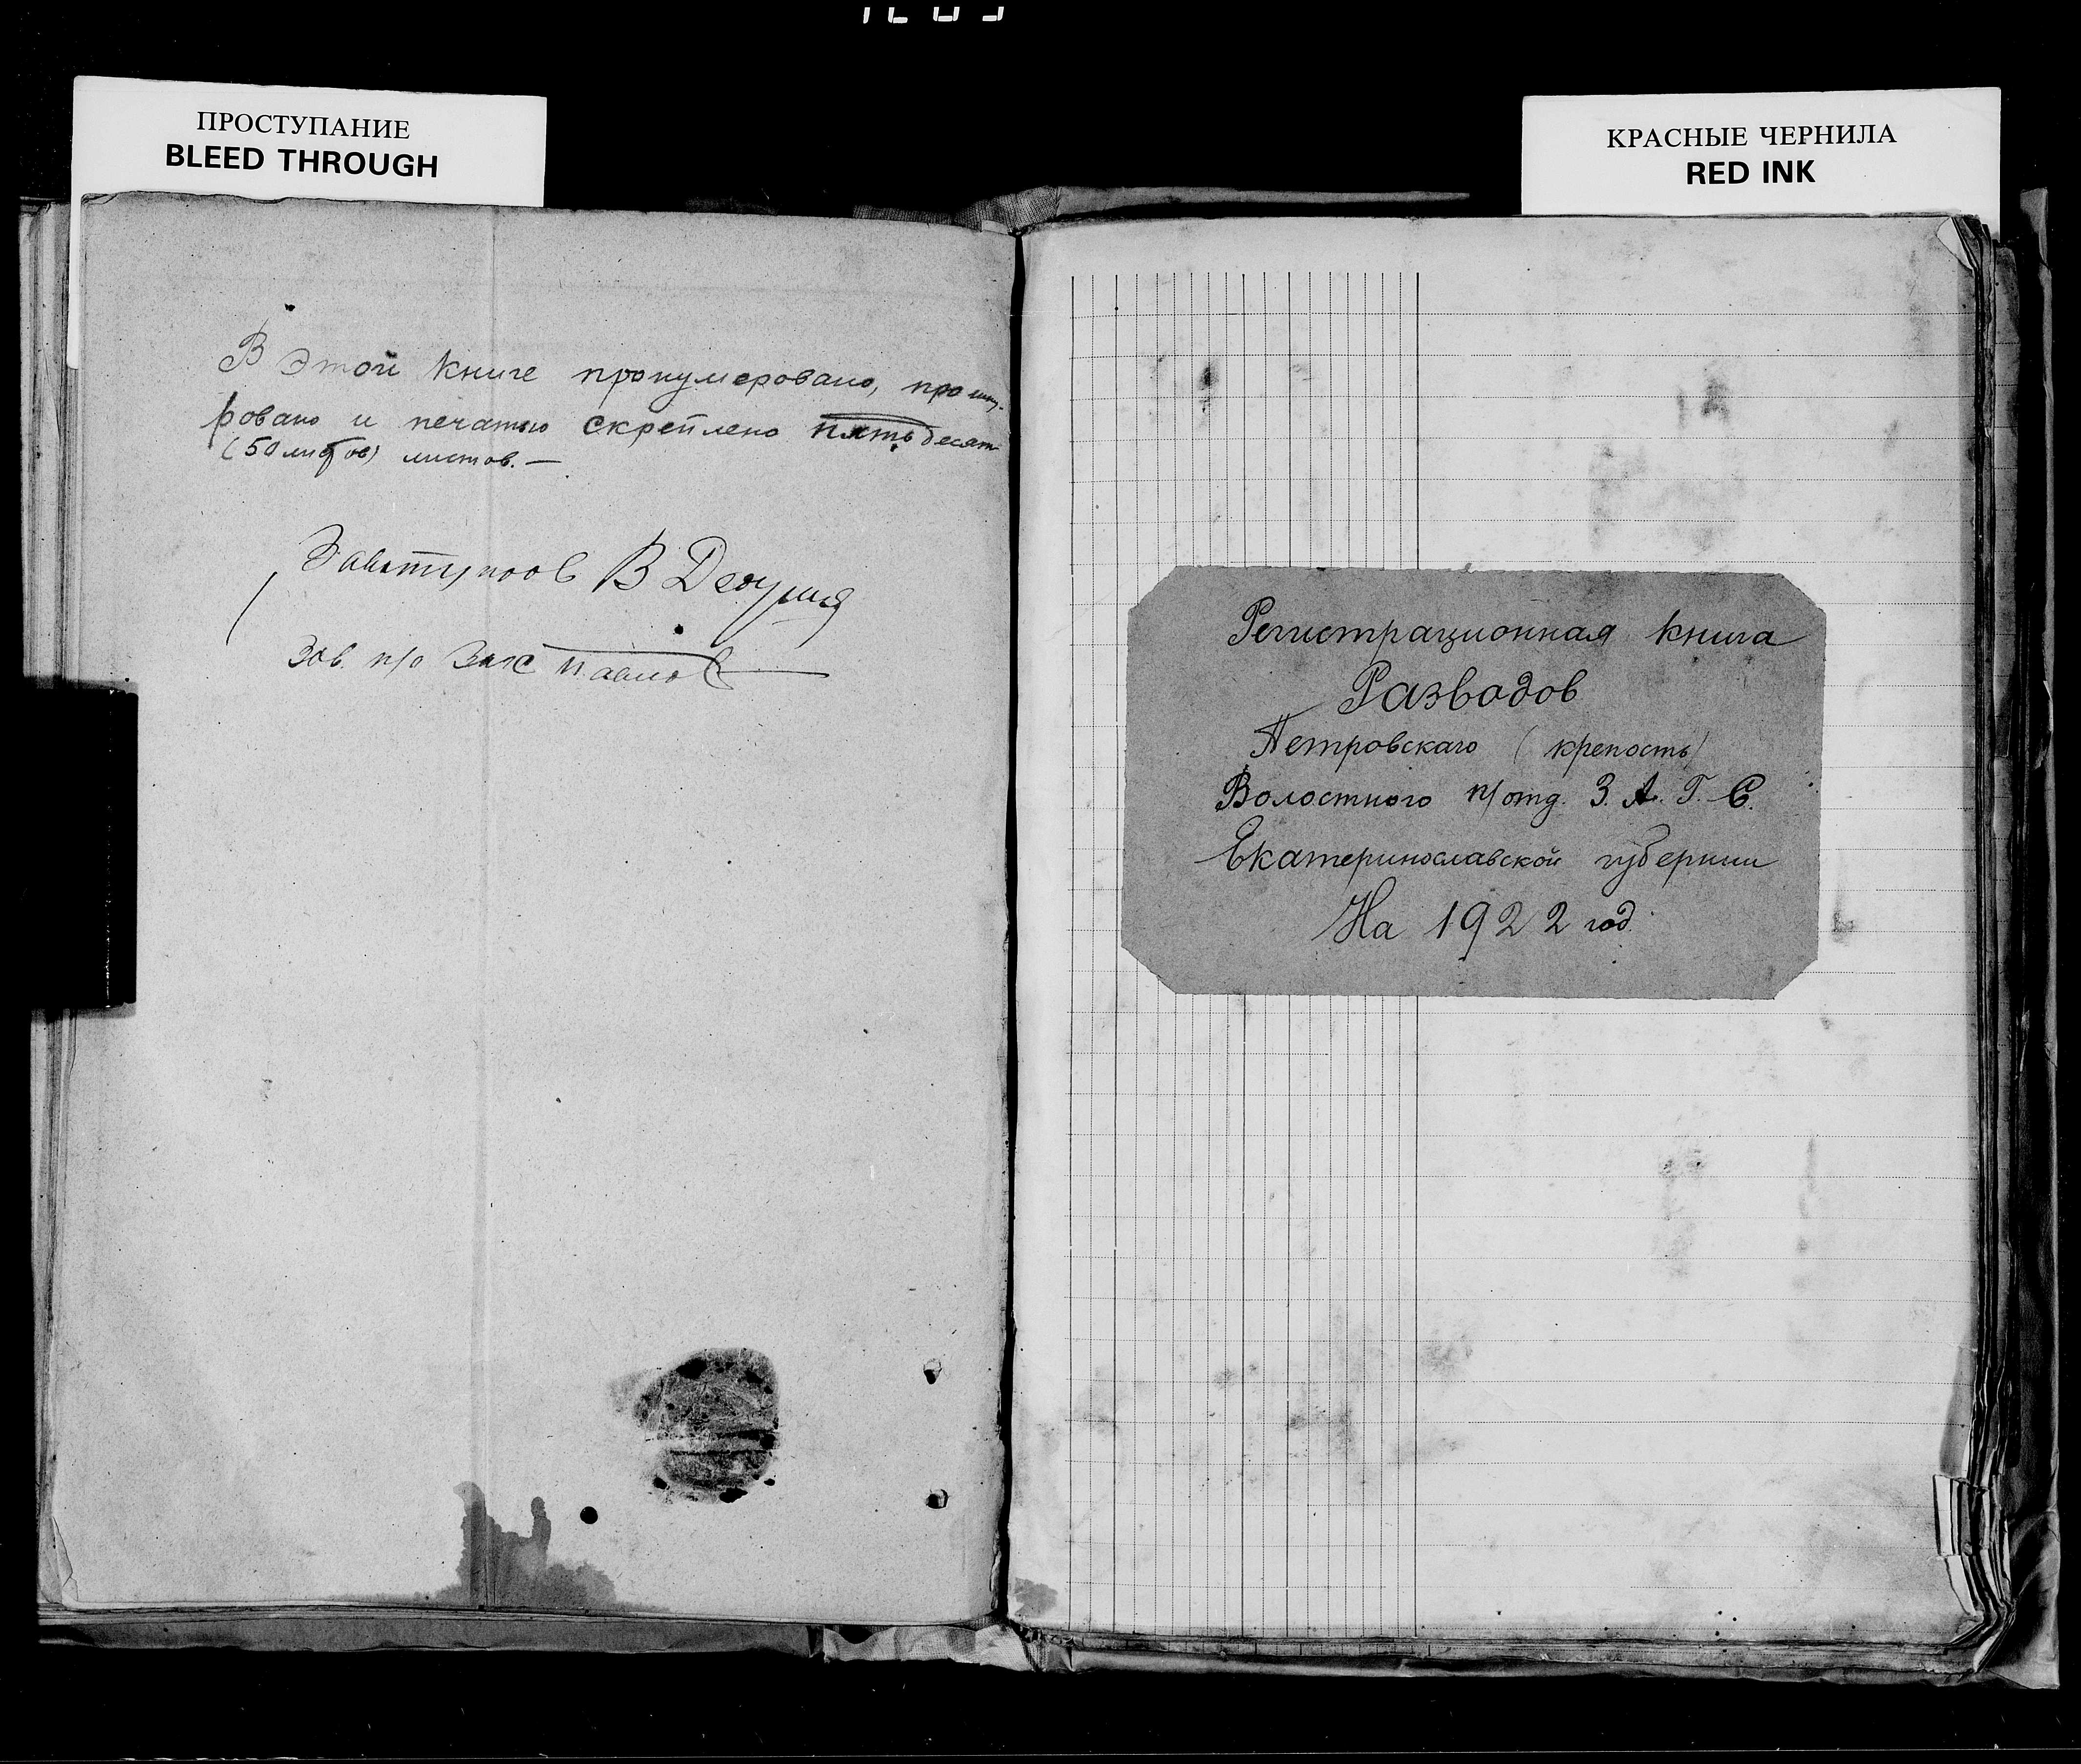 ПРОСТУПАНИЕ
BLEED THROUGH
КРАСНЫЕ ЧЕРНИЛА
RED INK
В этой книге пронумеровано, прошну-
ровано и печатью скреплено пятьдесят
(50 листов) листов. —
В
Зав. п/о Загс Павлов
Регистрационная книга
Разводов
Петровскаго (крепость)
Волостного п/отд. З. А. Г. С.
Екатеринославской губернии
На 1922 год.